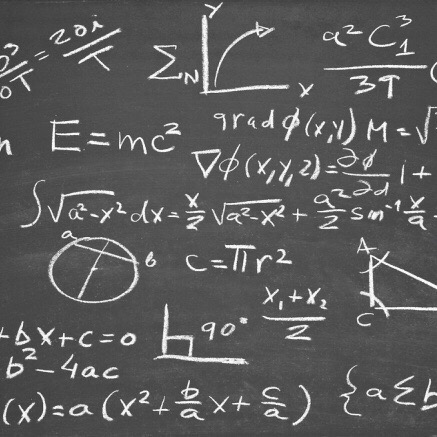 = 20i/T
Σ_N
y
x
a² C₁³ / 3T
E=mc²
grad φ(x,y) M = √
∇φ(x,y,z)= ∂φ/∂d i +
∫√a²-x² dx = x/2 √a²-x² + a²/2 sin⁻¹ x/a -
a
b
c=πr²
A
C
x₁+x₂ / 2
90°
+bx+c=0
b²-4ac
(x)=a(x²+ b/a x+ c/a)
{a Σ b